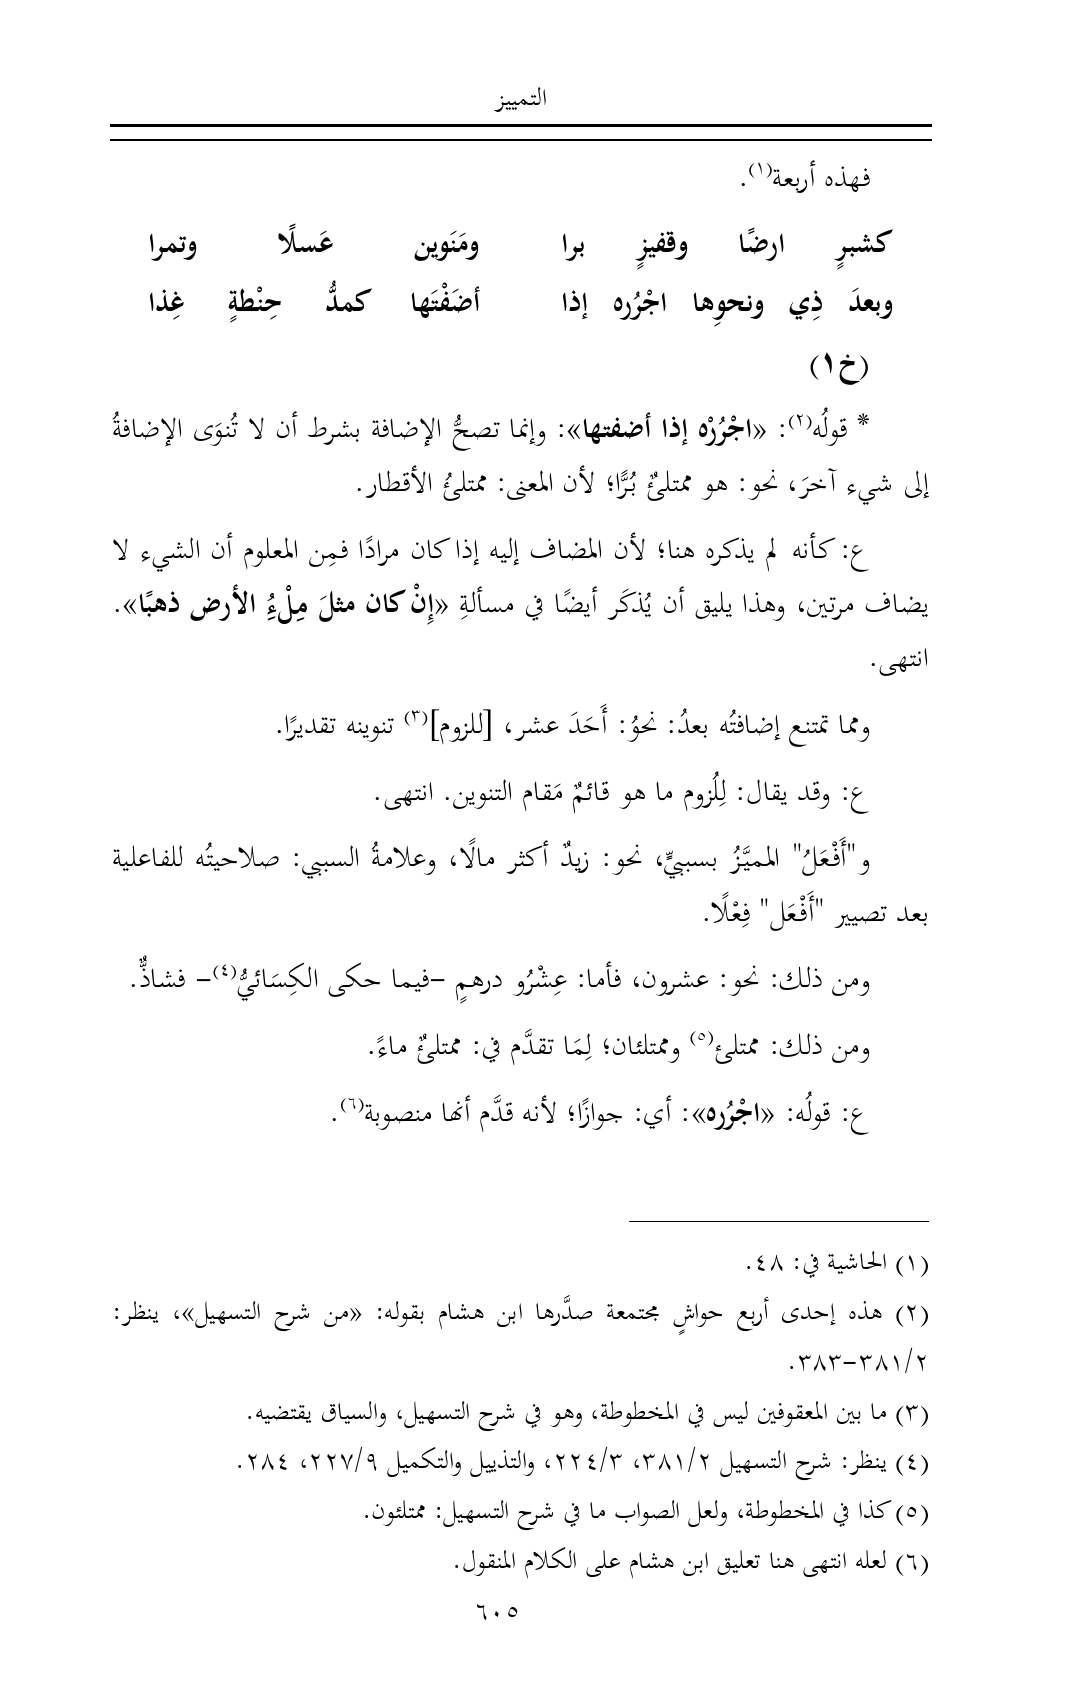 التمييز
فهذه أربعة(١).
كشبرٍ ارضًا وقفيزٍ برا ومَنَوين عَسلًا وتمرا
وبعدَ ذِي ونحوِها اجْرُره إذا أضَفْتَها كمدُّ حِنْطةٍ غِذا
(خ١)
* قولُه(٢): «اجْرُرْه إذا أضفتها»: وإنما تصحُّ الإضافة بشرط أن لا تُنوَى الإضافةُ
إلى شيء آخرَ، نحو: هو ممتلئٌ بُرًّا؛ لأن المعنى: ممتلئُ الأقطار.
ع: كأنه لم يذكره هنا؛ لأن المضاف إليه إذا كان مرادًا فمِن المعلوم أن الشيء لا
يضاف مرتين، وهذا يليق أن يُذكَر أيضًا في مسألةِ «إِنْ كان مثلَ مِلْءُِ الأرض ذهبًا».
انتهى.
ومما تمتنع إضافتُه بعدُ: نحوُ: أَحَدَ عشر، [للزوم](٣) تنوينه تقديرًا.
ع: وقد يقال: لِلُزوم ما هو قائمٌ مَقام التنوين. انتهى.
و"أَفْعَلُ" المميَّزُ بسببيٍّ، نحو: زيدٌ أكثر مالًا، وعلامةُ السببي: صلاحيتُه للفاعلية
بعد تصيير "أَفْعَل" فِعْلًا.
ومن ذلك: نحو: عشرون، فأما: عِشْرُو درهمٍ -فيما حكى الكِسَائيُّ(٤)- فشاذٌّ.
ومن ذلك: ممتلئ(٥) وممتلئان؛ لِمَا تقدَّم في: ممتلئٌ ماءً.
ع: قولُه: «اجْرُره»: أي: جوازًا؛ لأنه قدَّم أنها منصوبة(٦).
(١) الحاشية في: ٤٨.
(٢) هذه إحدى أربع حواشٍ مجتمعة صدَّرها ابن هشام بقوله: «من شرح التسهيل»، ينظر:
٢/٣٨١-٣٨٣.
(٣) ما بين المعقوفين ليس في المخطوطة، وهو في شرح التسهيل، والسياق يقتضيه.
(٤) ينظر: شرح التسهيل ٢/٣٨١، ٣/٢٢٤، والتذييل والتكميل ٩/٢٢٧، ٢٨٤.
(٥) كذا في المخطوطة، ولعل الصواب ما في شرح التسهيل: ممتلئون.
(٦) لعله انتهى هنا تعليق ابن هشام على الكلام المنقول.
٦٠٥